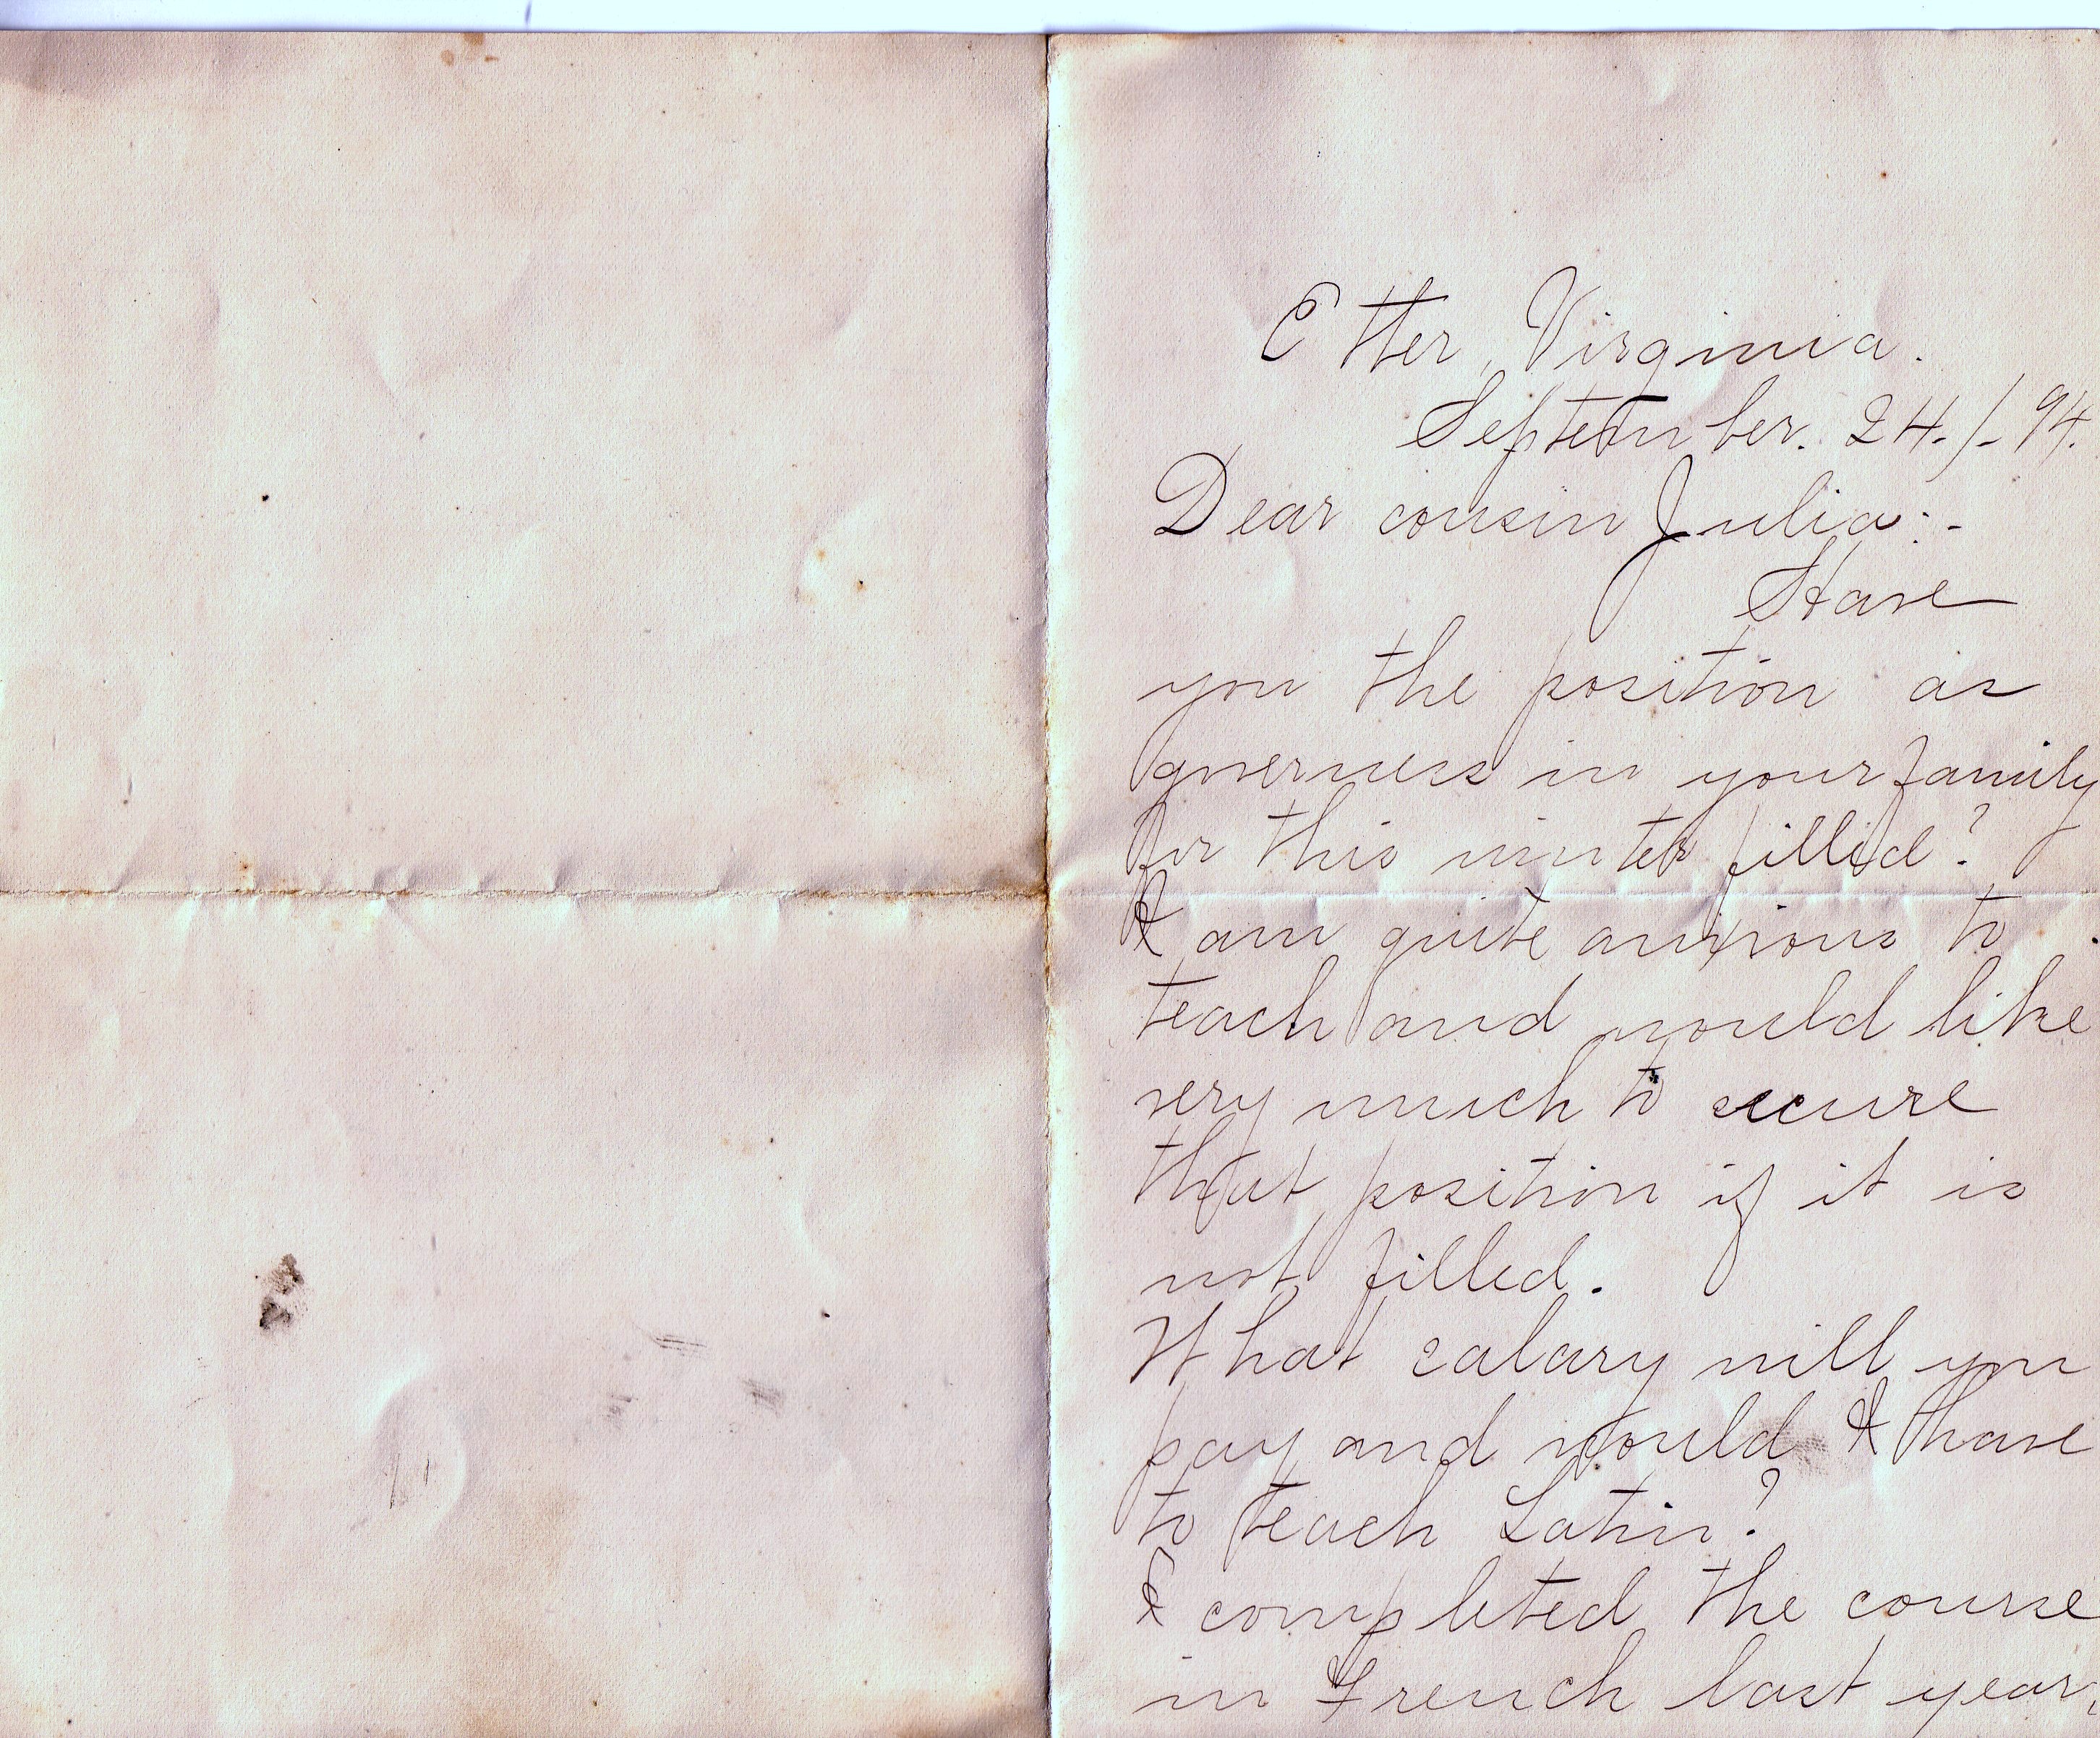 Etter, Virginia.
September. 24./-94.
Dear cousin Julia:-
Have
you the position as
governess in your family
for this winter filled?
I am quite anxious to
teach and would like
very much to secure
that position if it is
not filled.
What salary will you
pay and would I have
to teach Latin?
I completed the course
in French last year,